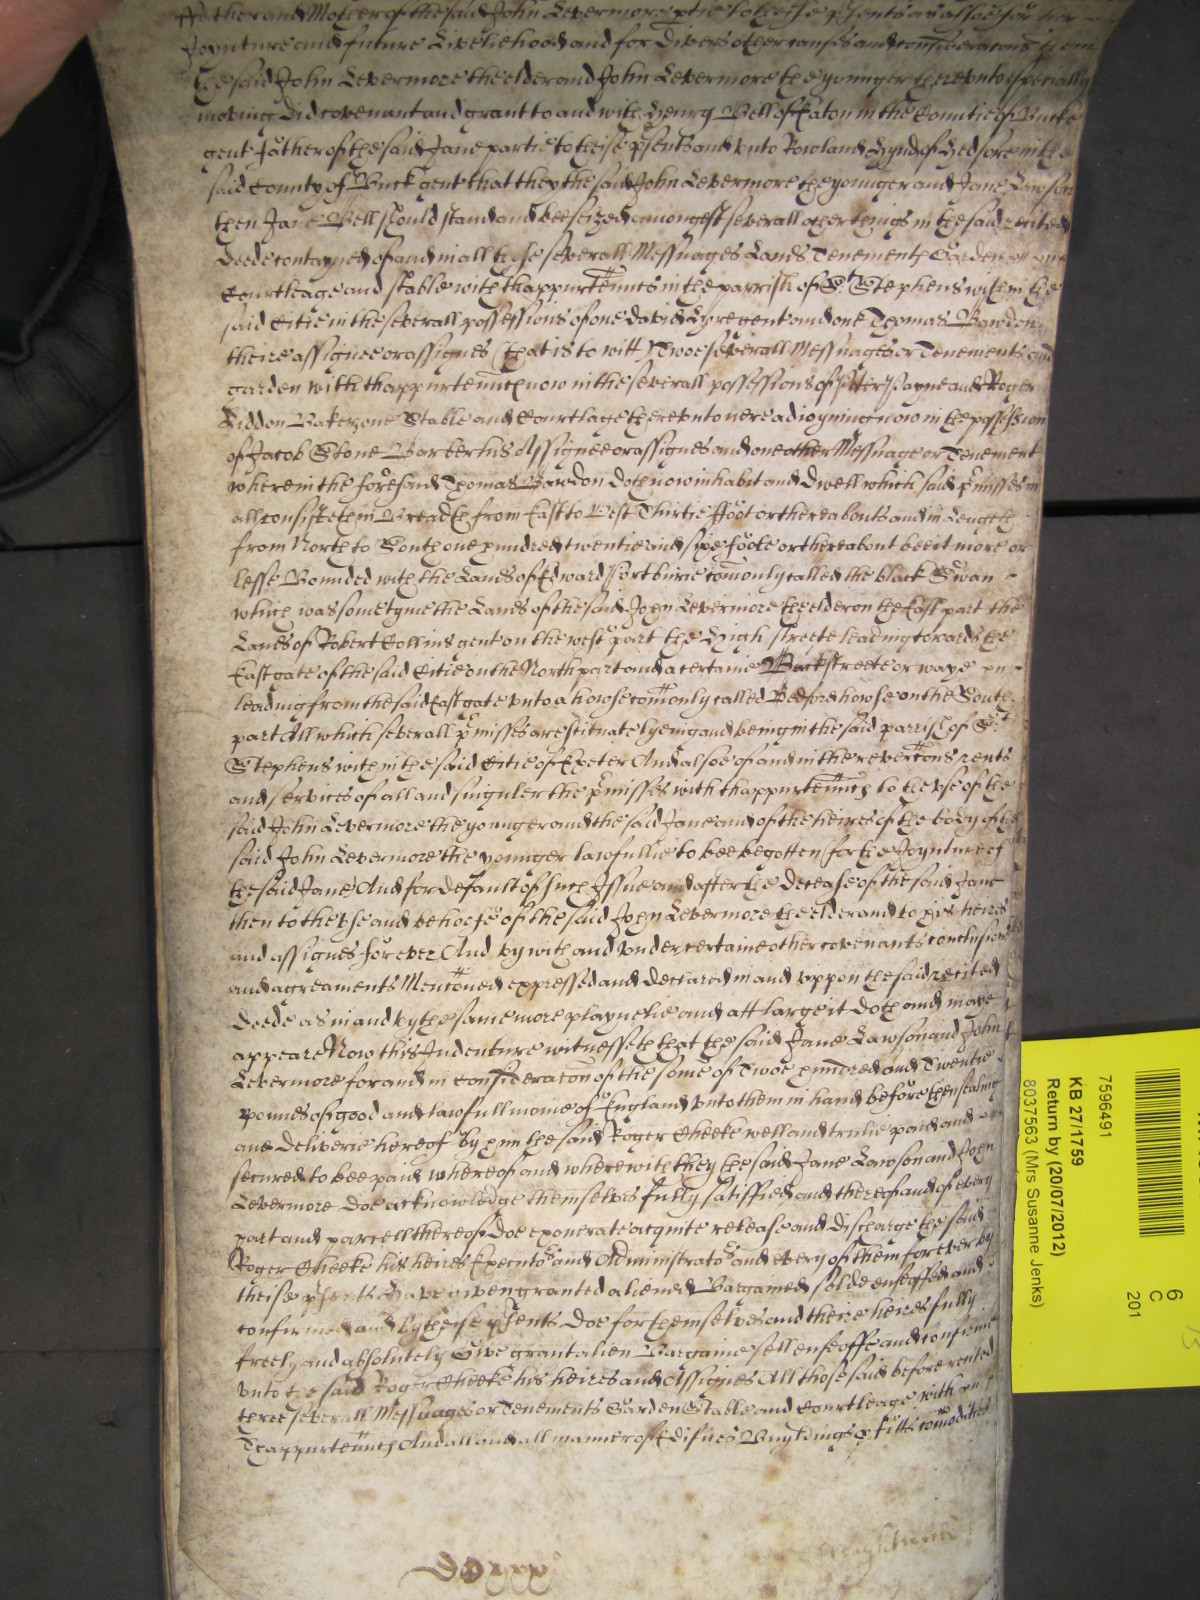 Father and Mother of the said John Levermore ptie to theise psents as alsoe for her
Joynture and future Liveliehood and for divers other causes and consideracons them
the said John Levermore the elder and John Levermore the younger thereunto especially
moving did covenant and grant to and with Henry Bell of Eaton in the Countie of Bucks
gent father of the said Jane partie to theise psents and unto Rowland Hynd of Hedsore in the
said County of Buck gent that they the said John Levermore the younger and Jane Lawson
then Jane Bell should stand and bee seized amongest severall other things in the said recited
deede contayned of and in all those severall Messuages Lands Tenements Garden
Courtleage and stable with thappurtennces in the parrish of St Stephens within the
said Citie in the severall possessions of one David Eyre gent and one Thomas Bawdon
theire assignee or assignes (that is to witt) Twoe severall Messuages or Tenements and
garden with thappurtennces now in the severall possessions of Peter Payne and Roger
Siddon Baker, one Stable and Courtlage thereunto nere adioyninge now in the possession
of Jacob Stone Barber his Assignee or assignes and one other Messuage or Tenement
wherein the foresaid Thomas Bawdon doth now inhabit and dwell which said pmisses in
all consisteth in Breadth from East to West Thirtie ffoot or thereabouts and in Length
from North to South one hundred twentie and sixe foote or thereabout bee it more or
lesse Bounded with the Lands of Edward comonly called the black Swan
which was sometyme the Lands of the said John Levermore the elder on the East part the
Lands of Robert Collins gent on the west part the High streete leading towards the
Eastgate of the said Citie on the North part and a certaine Backstreete or waye
leading from the said Eastgate unto a howse comonly called Bedford howse on the South
part All which severall pmisses are scituate lyeing and being in the said parrish of St
Stephens within the said Citie of Exeter And alsoe of and in the revercons rents
and services of all and singuler the pmisses with thappurtennces to the use of the
said John Levermore the younger and the said Jane and of the heires of the body of the
said John Levermore the younger lawfullie to bee begotten for the Joynture of
the said Jane And for default of such Issue and after the decease of the said Jane
then to the use and behoofe of the said John Levermore the elder and to his heires
and assignes for ever And by with and under certaine other covenants conclusions
and agreaments Menconed expressed and declared in and uppon the said recited
deede as in and by the same more playnelie and att large it doth and maye
appeare Now this Indenture witnesseth that the said Jane Lawson and John
Levermore for and in consideracon of the some of Twoe hundred and Twentie
Pounds of good and lawfull monie of England unto them in hand before thensealing
and deliverie hereof by him the said Roger Cheeke well and trulie paid and
secured to bee paid whereof and wherewith they the said Jane Lawson and John
Levermore doe acknowledge themselves fully satisfied and thereof and of every
part and parcell thereof doe exonerate acquite release and discharge the said
Roger Cheeke his heires Executors and Administrators and every of them for ever by
theise psents Have given granted aliened Bargained solde enfeoffed and
confirmed and by theise psents doe for themselves and theire heires fully
freely and absolutely Give grant alien Bargaine sell enfeoffe and confirme
unto the said Roger Cheeke his heires and Assignes All those said before recited
three severall Messuages or Tenements Garden Stable and Courtleage with
Thappurtennces And all and all manner of Edifices Buyldings comodities
7596491
KB 27/1759
Return by (20/07/2012)
8037563 (Mrs Susanne Jenks)
6
C
201